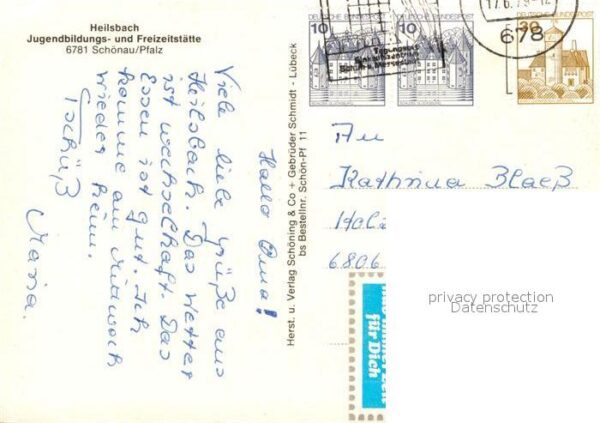 Heilsbach
Jugendbildungs- und Freizeitstätte
6781 Schönau/Pfalz
Hallo Oma!
Viele liebe Grüße aus
Heilsbach. Das Wetter
ist wechselhaft. Das
Essen ist gut. Ich
komme am Mittwoch
wieder heim.
Tschüß
Maria.
Herst. u. Verlag Schöning & Co + Gebrüder Schmidt - Lübeck
bs Bestellnr. Schön-Pf 11
DEUTSCHE BUNDESPOST
10
DEUTSCHE BUNDESPOST
10
DEUTSCHE BUNDESPOST
30
17.6.79-12
678
An
Kathrina Blaeß
6806
für Dich
privacy protection
Datenschutz